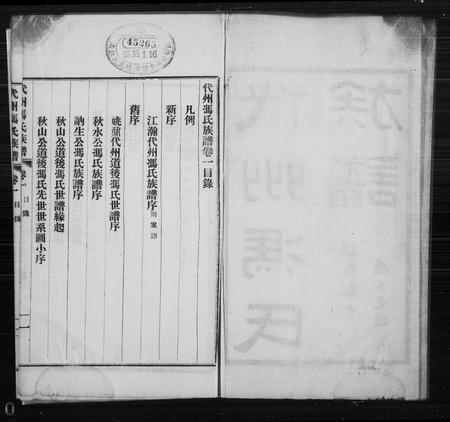 代州馮氏族譜卷一目錄
凡例
新序
江瀚代州馮氏族譜序附案語
舊序
姚鼐代州道後馮氏世譜序
秋水公馮氏族譜序
訥生公馮氏族譜序
秋山公道後馮氏世譜緣起
秋山公道後馮氏先世世系圖小序
代州馮氏族譜 卷一 目錄 一
45265
族譜
代州馮氏
0